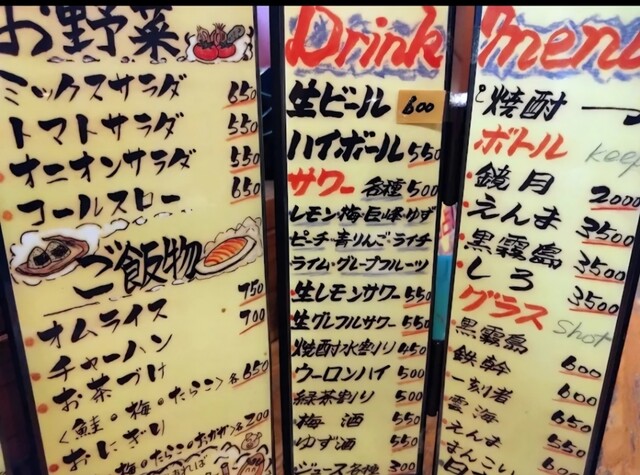 お野菜
ミックスサラダ 650
トマトサラダ 550
オニオンサラダ 550
コールスロー 650
ご飯物
オムライス 750
チャーハン 700
お茶づけ
(鮭・梅・たらこ)各650
おにぎり
Drink
生ビール 600
ハイボール 550
サワー 各種 500
レモン 梅 巨峰 ゆず
ピーチ・青りんご・ライチ
ライム・グレープフルーツ
生レモンサワー 550
生グレフルサワー 550
焼酎水割り 450
ウーロンハイ 500
緑茶割り 500
梅酒 550
ゆず酒 550
ジュース各種 300
menu
焼酎
ボトル keep
鏡月 2000
えんま 3500
黒霧島 3500
しろ 3500
グラス Shot
黒霧島 600
鉄幹 600
一刻者 650
雲海 550
えんま
まんこい